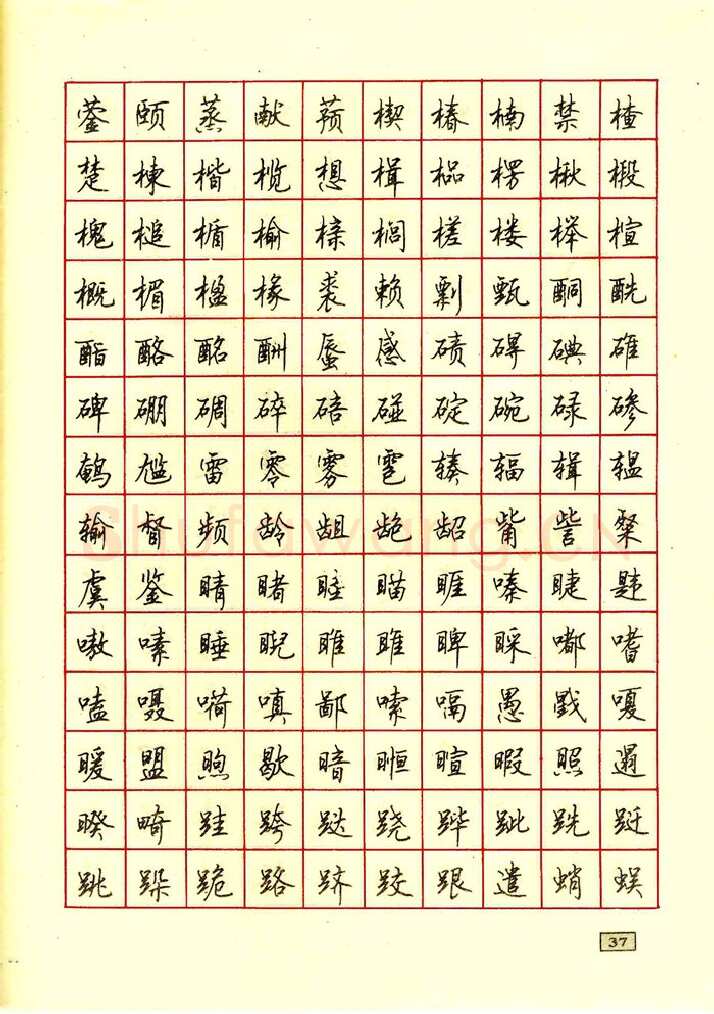 蓥颐蒸献蓣楔椿楠禁楂
楚楝楷榄想楫榀楞楸椴
槐槌楯榆榇榈槎楼榉楦
概楣楹椽裘赖剽甄酮酰
酯酪酩酬蜃感碛碍碘碓
碑硼碉碎碚碰碇碗碌碜
鹌尴雷零雾雹辏辐辑辒
输督频龄龃龅龆觜訾粲
虞鉴睛睹睦瞄睚嗪睫韪
嗷嗉睡睨雎睢睥睬嘟嗜
嗑嗫嗬嗔鄙嗦嗝愚戥嗄
暖盟煦歇暗暅暄暇照遢
暌畸跬跨跶跷跸跐跣跹
跳跺跪路跻跤跟遣蛸蜈
37